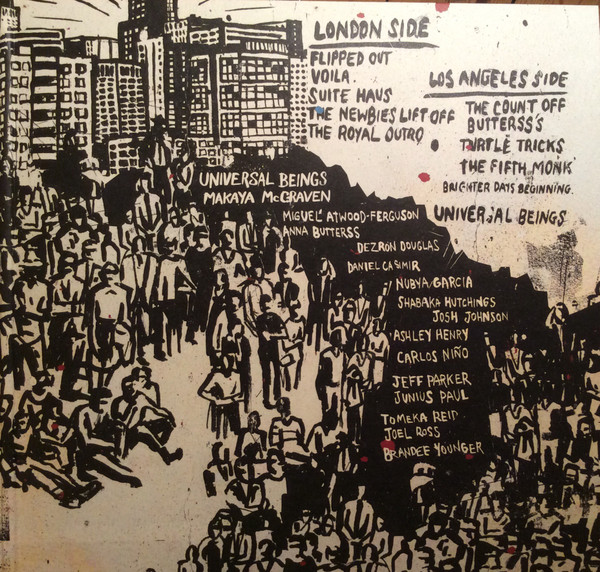 LONDON SIDE
FLIPPED OUT
VOILA.
SUITE HAUS
THE NEWBIES LIFT OFF
THE ROYAL OUTRO
LOS ANGELES SIDE
THE COUNT OFF
BUTTERSS'S
TURTLE TRICKS
THE FIFTH MONK
BRIGHTER DAYS BEGINNING.
UNIVERSAL BEINGS
UNIVERSAL BEINGS
MAKAYA McCRAVEN
MIGUEL ATWOOD-FERGUSON
ANNA BUTTERSS
DEZRON DOUGLAS
DANIEL CASIMIR
NUBYA GARCIA
SHABAKA HUTCHINGS
JOSH JOHNSON
ASHLEY HENRY
CARLOS NIÑO
JEFF PARKER
JUNIUS PAUL
TOMEKA REID
JOEL ROSS
BRANDEE YOUNGER